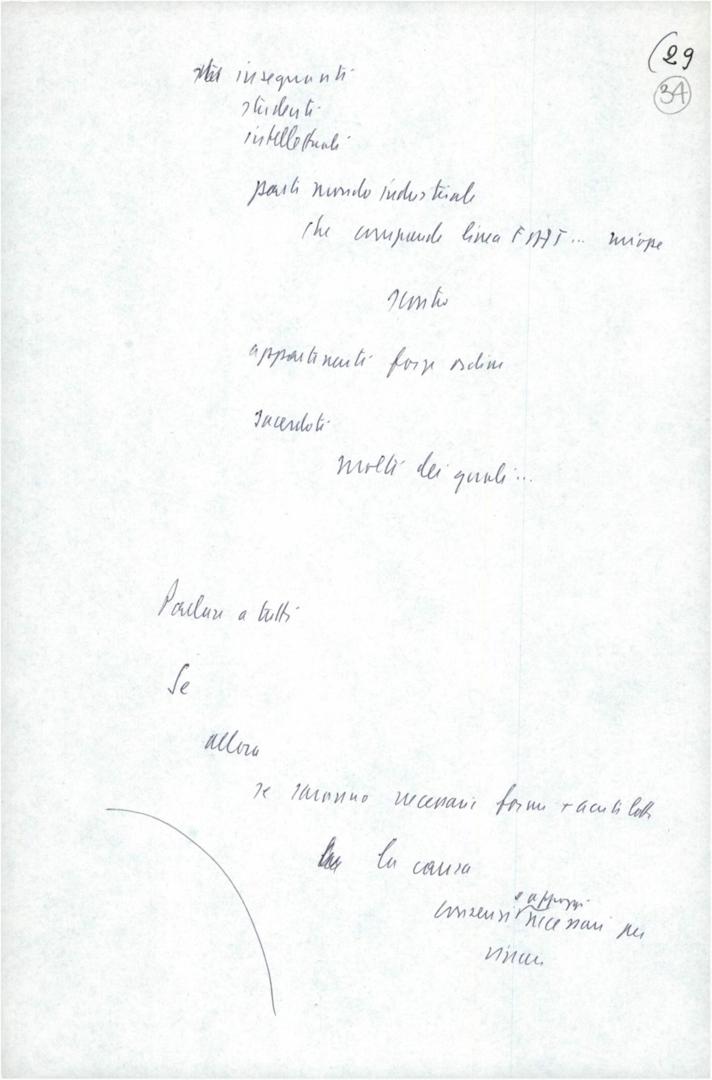 (29
34
insegnanti
studenti
intellettuali
parti mondo industriale
che comprende linea FIAT... miope
scontro
appartenenti forze ordine
sacerdoti
molti dei quali...
Parlare a tutti
Se
allora
se saranno necessarie forme + acute lotta
la causa
e appoggi
consensi necessari per
vincere